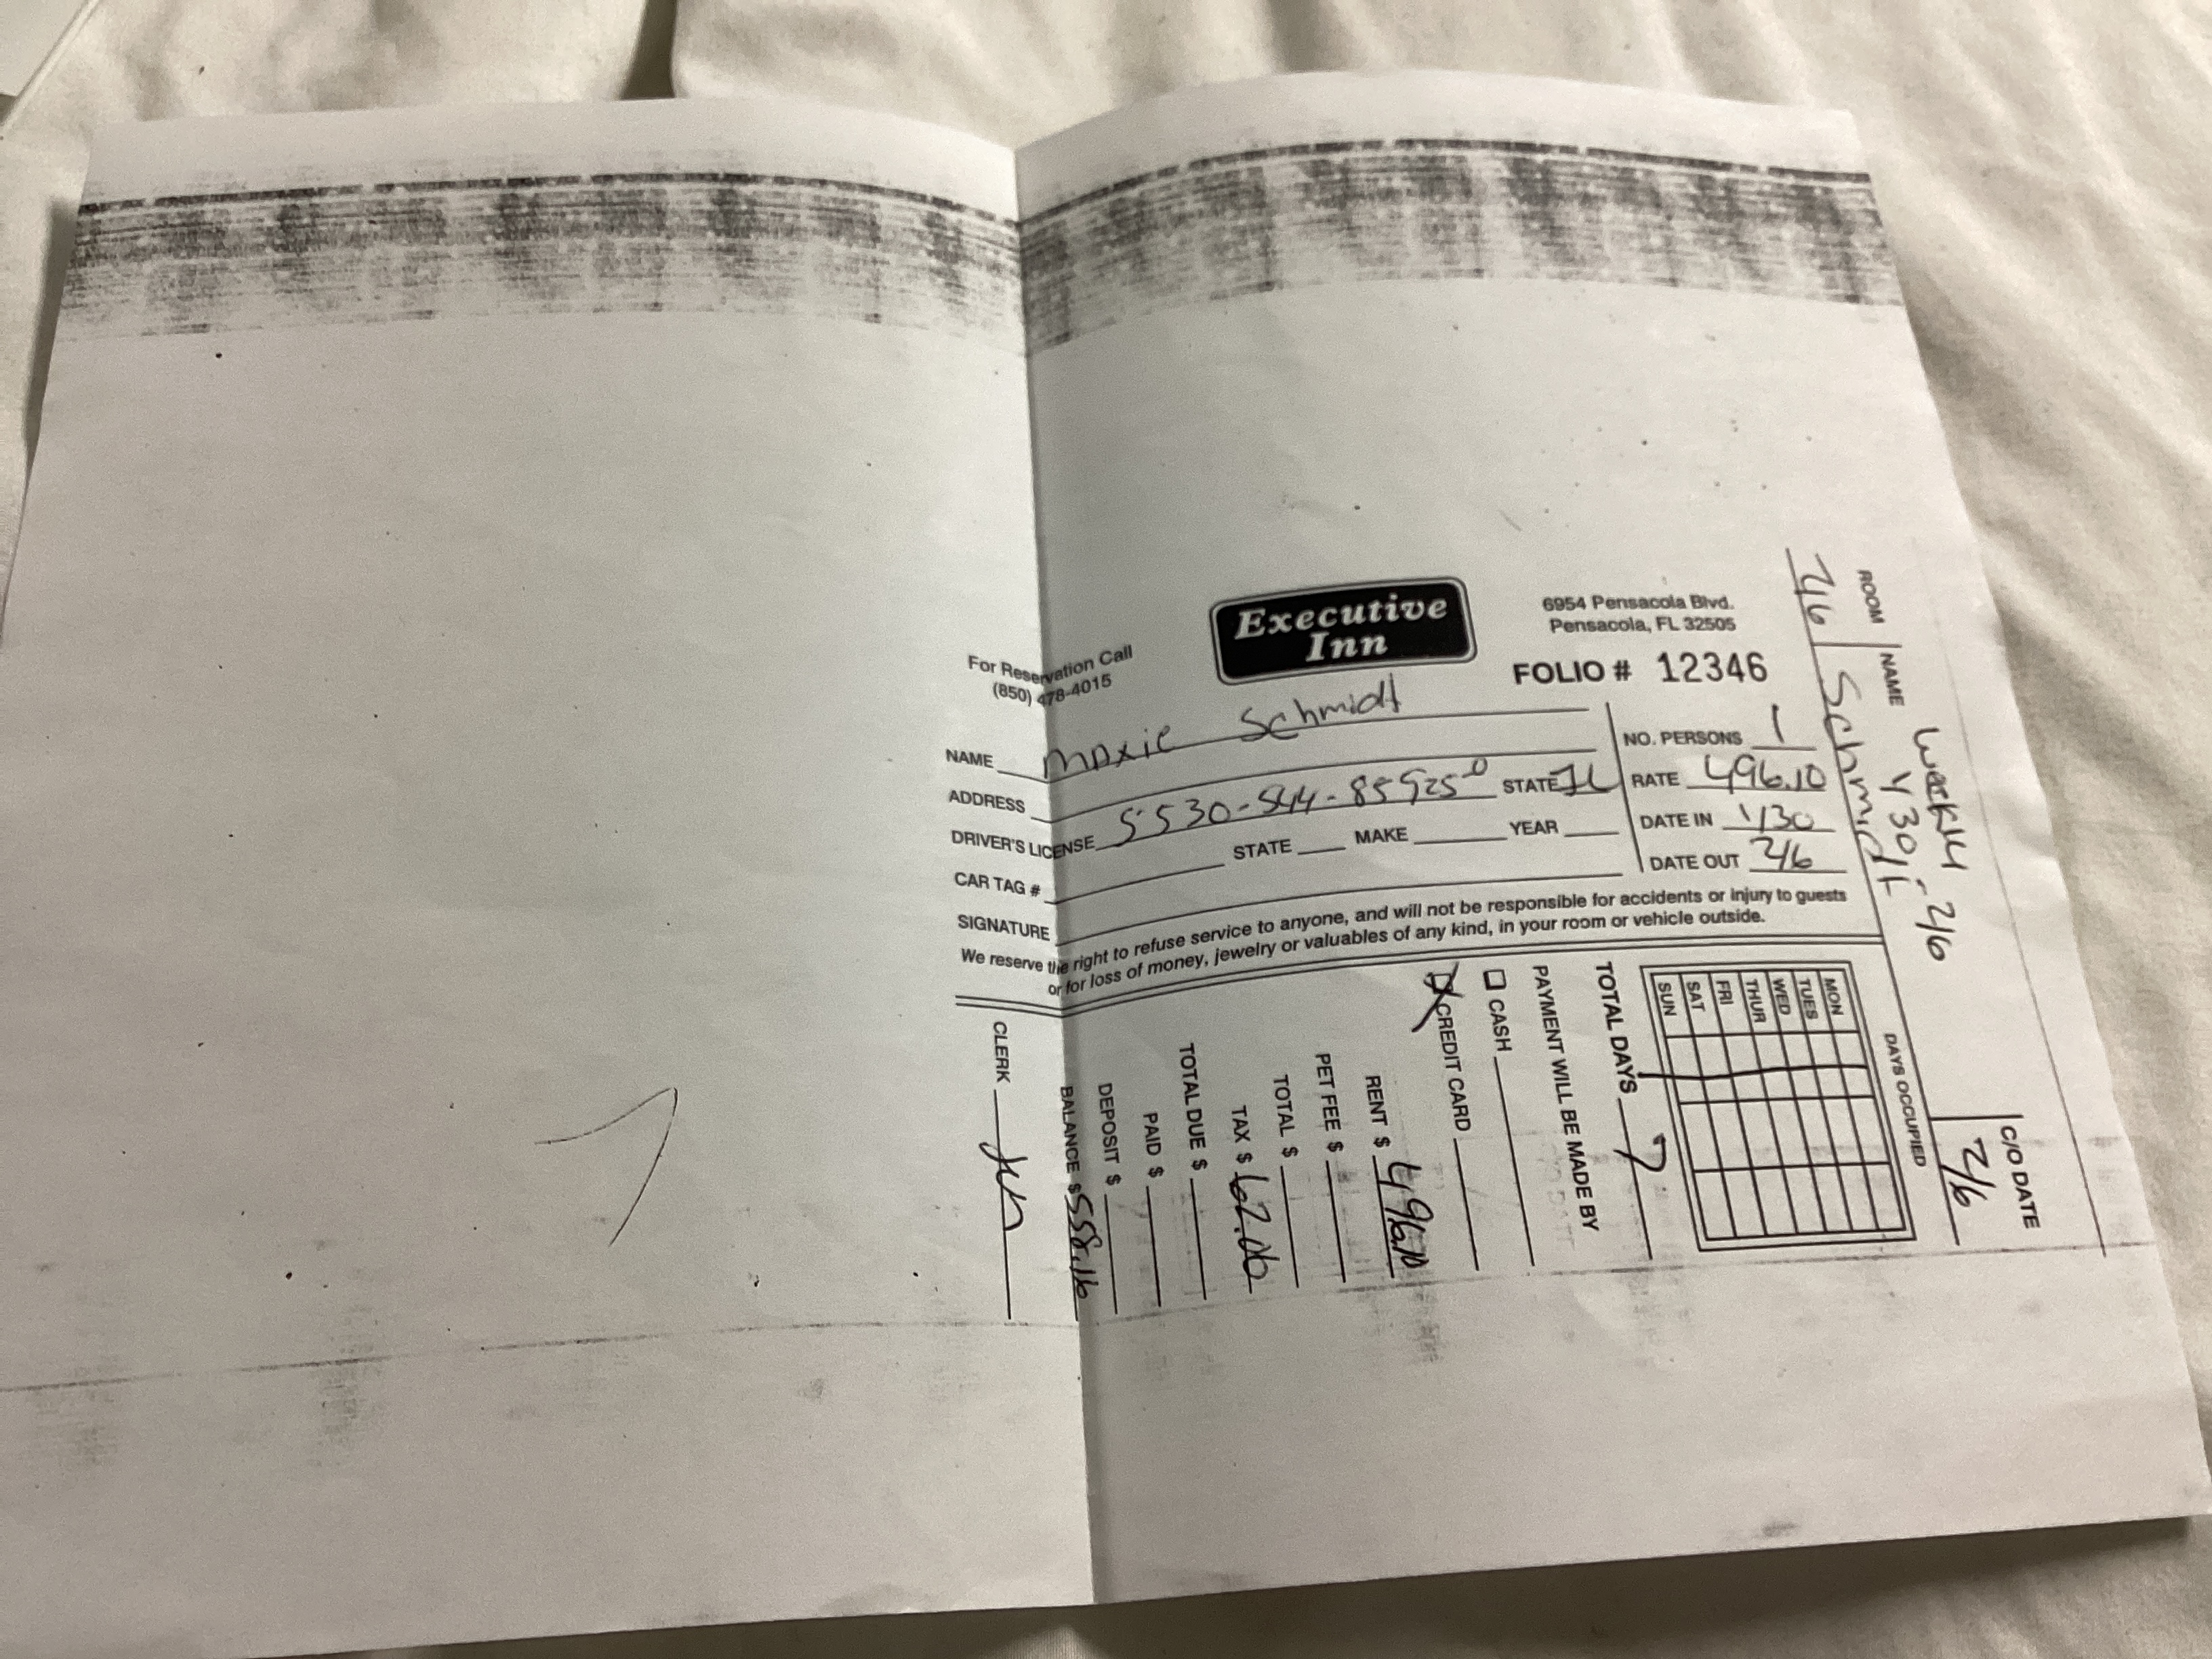 For Reservation Call
(850) 478-4015
Executive
Inn
6954 Pensacola Blvd.
Pensacola, FL 32505
FOLIO # 12346
NAME Maxie Schmidt
ADDRESS
DRIVER'S LICENSE S530-544-85925-0 STATE IL
CAR TAG # STATE MAKE YEAR
SIGNATURE
NO. PERSONS 1
RATE 496.10
DATE IN 1/30
DATE OUT 2/6
We reserve the right to refuse service to anyone, and will not be responsible for accidents or injury to guests
or for loss of money, jewelry or valuables of any kind, in your room or vehicle outside.
ROOM NAME C/O DATE
Schmidt 2/6
Weekly
1/30 - 2/6
DAYS OCCUPIED
MON
TUES
WED
THUR
FRI
SAT
SUN
TOTAL DAYS 7
PAYMENT WILL BE MADE BY
CASH
CREDIT CARD
RENT $ 496.10
PET FEE $
TOTAL $
TAX $ 62.06
TOTAL DUE $
PAID $
DEPOSIT $
BALANCE $ 558.16
CLERK